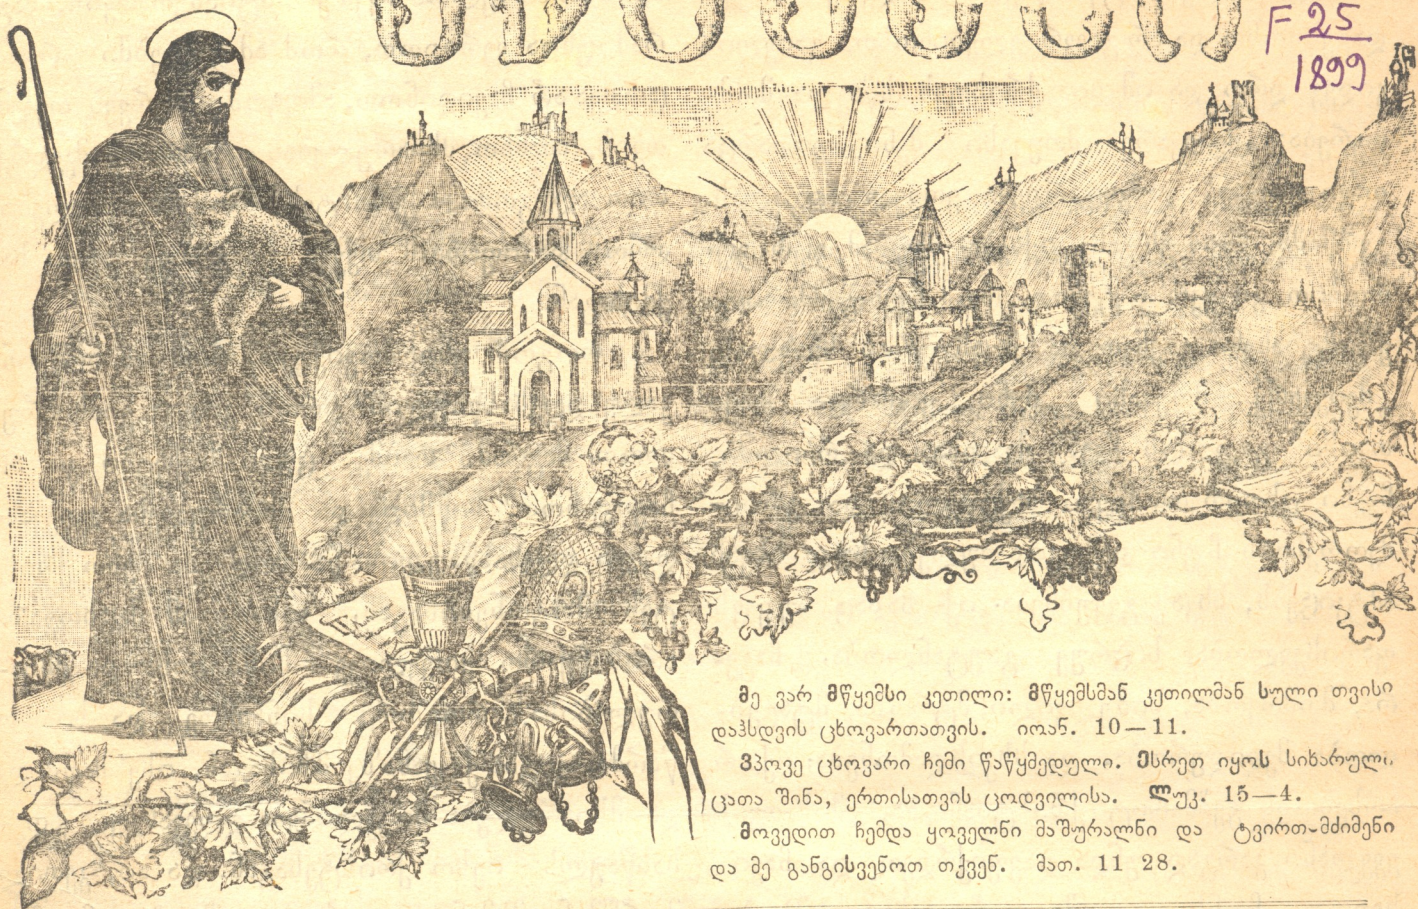 F 25
1899
მე ვარ მწყემსი კეთილი: მწყემსმან კეთილმან სული თვისი
დაჰსდვის ცხოვართათვის. იოან. 10—11.
ვპოვე ცხოვარი ჩემი წაწყმედული. ესრეთ იყოს სიხარული
ცათა შინა, ერთისათვის ცოდვილისა. ლუკ. 15—4.
მოვედით ჩემდა ყოველნი მაშურალნი და ტვირთ-მძიმენი
და მე განგისვენოთ თქვენ. მათ. 11 28.